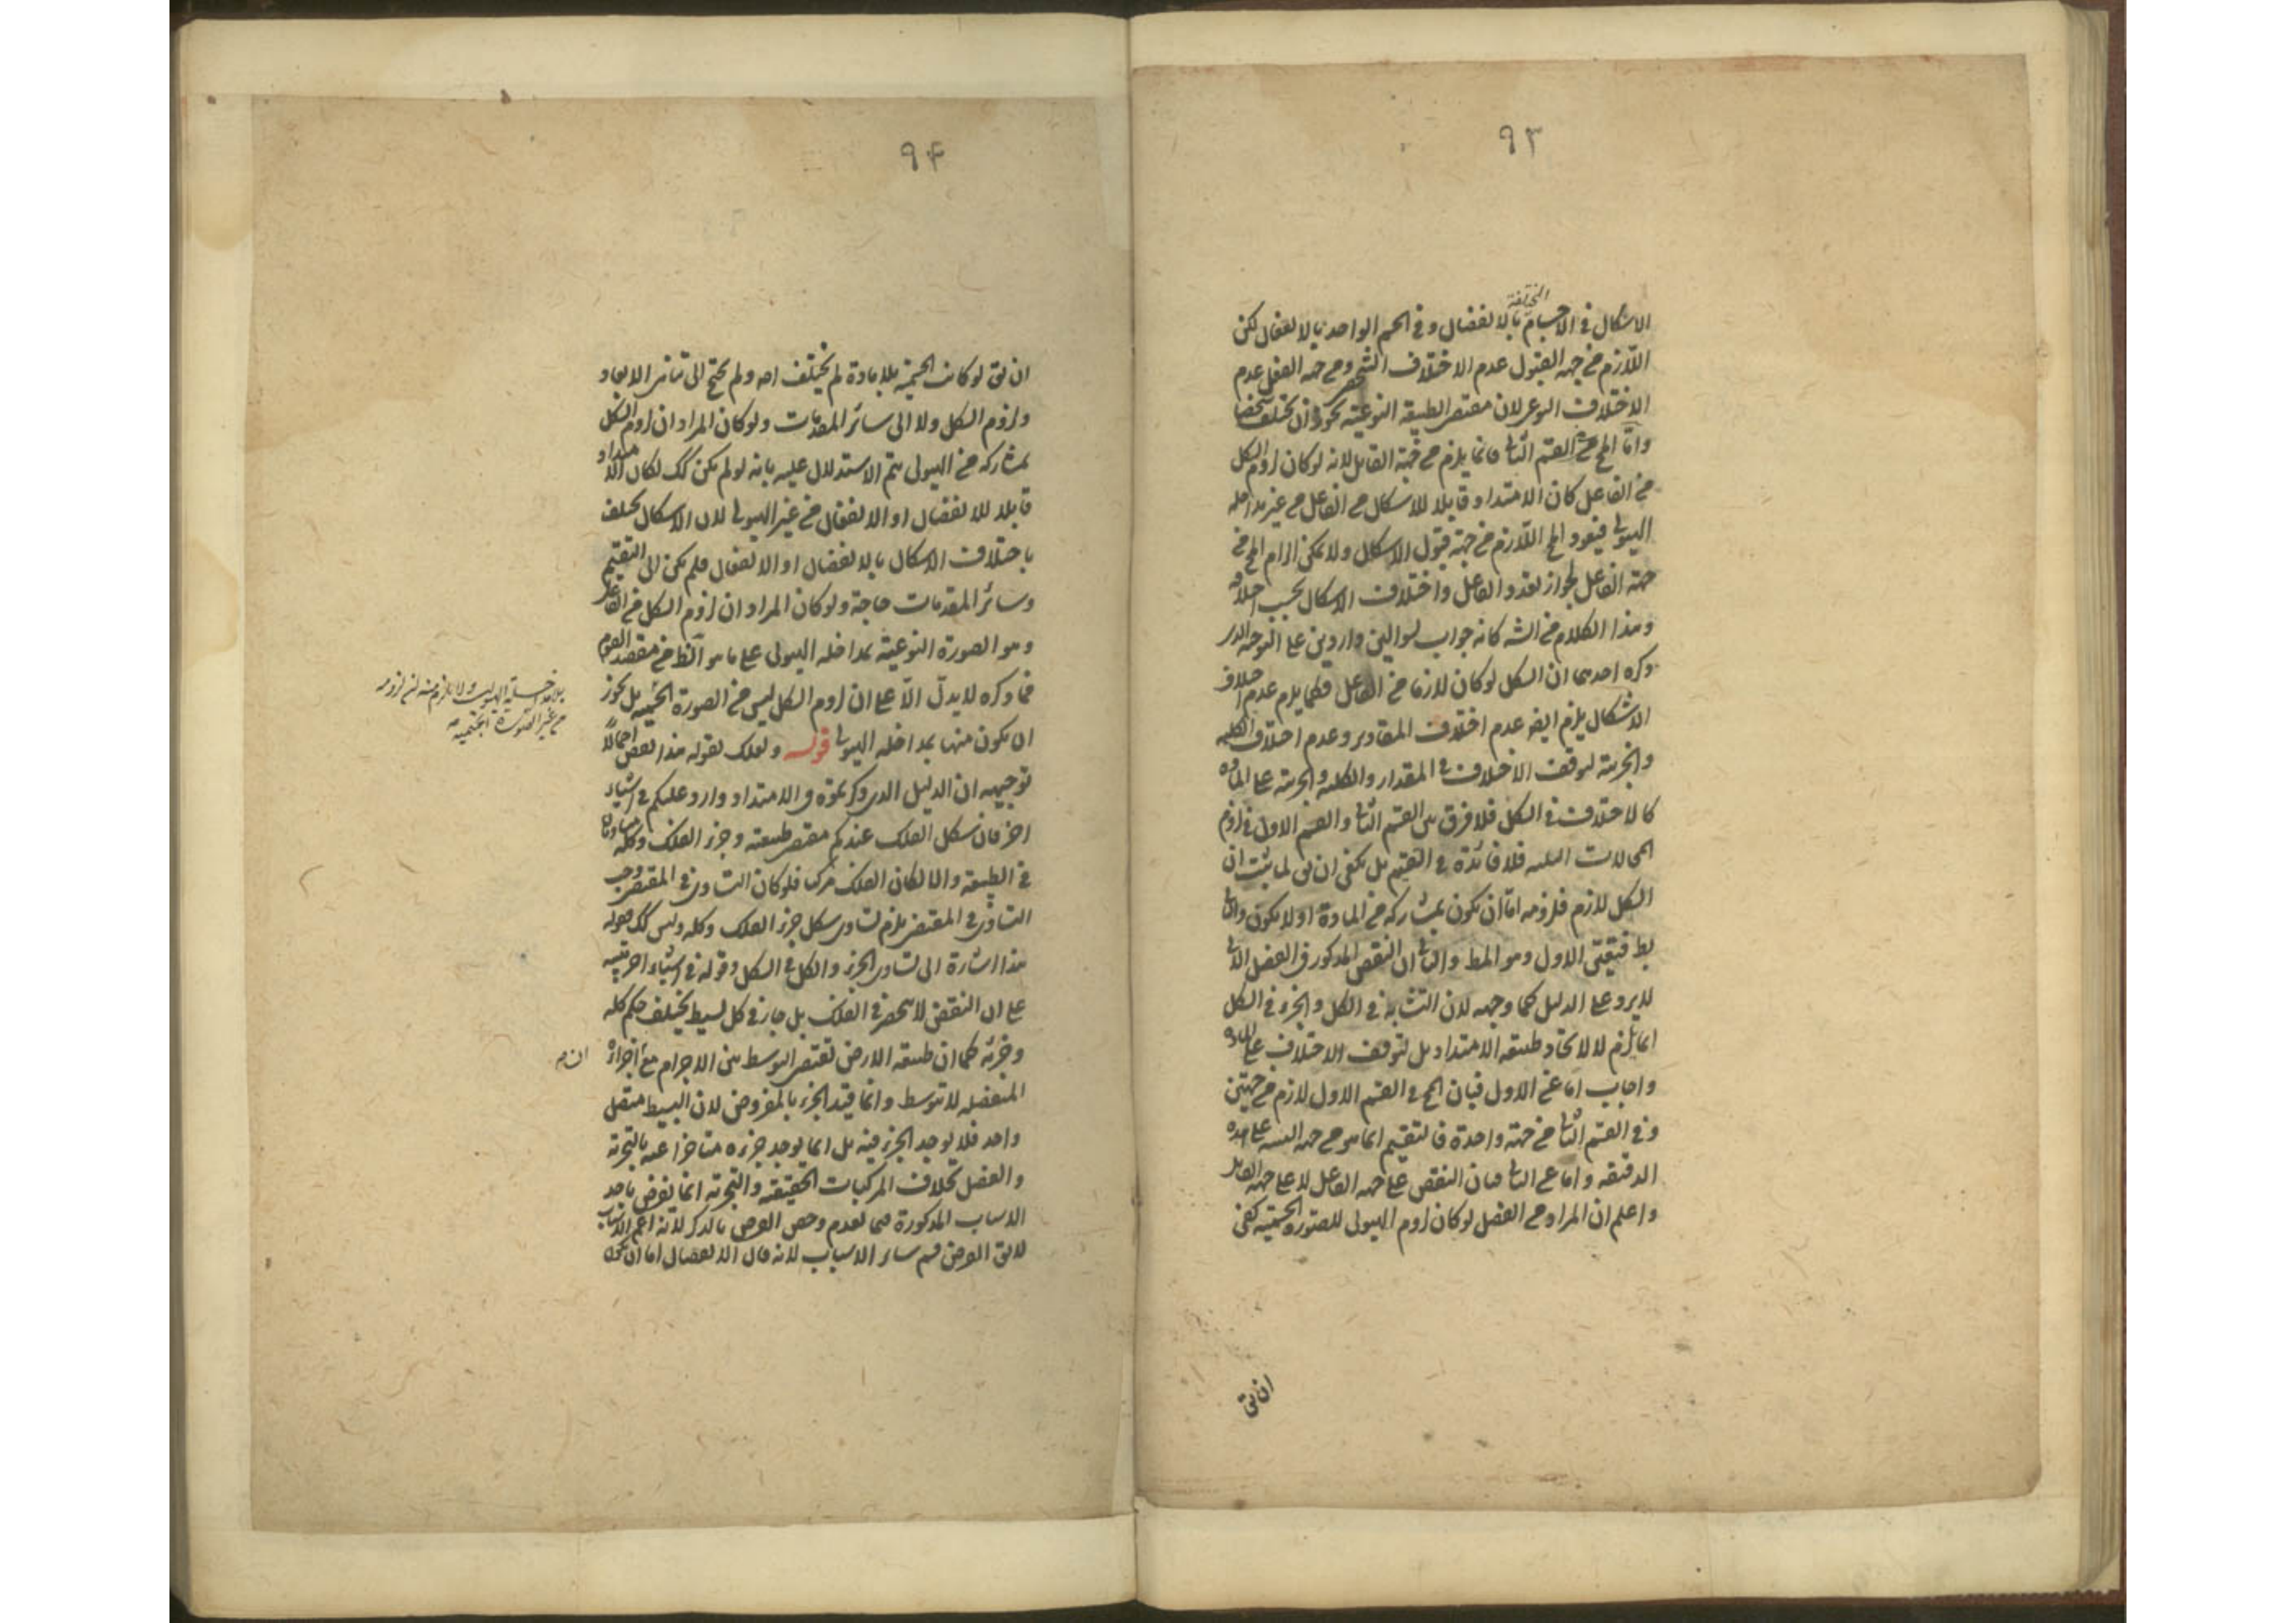 ٩٣
المختلفة
الاشكال فى الاجسام بالانفصال وفى الجسم الواحد بالانفعال لكن
اللازم من جهة القبول عدم الاختلاف الشخصى ومن جهة الفعل عدم
الاختلاف النوعى لان مقتضى الطبيعة النوعية يجوز ان يختلف شخصا
واما المح من القسم الثانى فانما يلزم من جهة القابل لانه لو كان لزوم الشكل
من الفاعل كان الامتداد قابلا للاشكال من الفاعل من غير مداخلة
الهيولى فيعود المح اللازم من جهة قبول الاشكال ولا يمكن الزام المح من
جهة الفاعل لجواز تعدد الفاعل واختلاف الاشكال بحسب اختلافه
وهذا الكلام من الشه كانه جواب لسوالين واردين على التوجيه الذى
ذكره احدهما ان الشكل لو كان لازما من الفاعل فكما يلزم عدم اختلاف
الاشكال يلزم ايضا عدم اختلاف المقادير وعدم اختلاف الكلية
والجزئية لتوقف الاختلاف فى المقدار والكلية والجزئية على المادة
كالاختلاف فى الشكل فلا فرق بين القسم الثانى والقسم الاول فى لزوم
المحالات الثلثة فلا فائدة فى التقسيم بل يكفى ان يق لما ثبت ان
الشكل لازم فلزومه اما ان يكون بمشاركة من المادة او لا يكون والثانى
بط فتعين الاول وهو المط والثانى ان النقض المذكور فى الفصل الاتى
لا يرد على الدليل كما وجهه لان التشابه فى الكل والجزء فى الشكل
انما يلزم لا لاتحاد طبيعة الامتداد بل لتوقف الاختلاف على المادة
واجاب اما عن الاول فبان المح فى القسم الاول لازم من جهتين
وفى القسم الثانى من جهة واحدة فالتقسيم انما هو من جهة التنبيه على هذه
الدقيقة واما عن الثانى فبان النقض على جهة الفاعل لا على جهة القابل
واعلم ان المراد من الفصل لو كان لزوم الهيولى للصورة الجسمية كفى
ان يق
٩۴
ان يق لو كانت الجسمية بلا مادة لم يختلف اصه ولم يحتج الى تناهى الابعاد
ولزوم الشكل ولا الى سائر المقدمات ولو كان المراد ان لزوم الشكل
بمشاركة من الهيولى يتم الاستدلال عليه بانه لو لم يكن كك لكان الامتداد
قابلا للانفصال او الانفعال من غير الهيولى لان الاشكال يختلف
باختلاف الاشكال بالانفصال او الانفعال فلم يكن الى التقسيم
وسائر المقدمات حاجة ولو كان المراد ان لزوم الشكل من الفاعل
وهو الصورة النوعية بمداخلة الهيولى على ما هو الظ من مقصد القوم
فما ذكره لا يدل الا على ان لزوم الشكل ليس من الصورة الجسمية بل يجوز
ان يكون منها بمداخلة الهيولى قوله ولعلك تقول هذا النقض اجمالا
توجيهه ان الدليل الذى ذكرتموه فى الامتداد وارد عليكم فى اشياء
اخر فان شكل الفلك عندكم مقتضى طبيعته وجزء الفلك وكله متساويان
فى الطبيعة والا لكان الفلك مركبا فلو كان التساوى فى المقتضى وجب
التساوى فى المقتضى يلزم تساوى شكل جزء الفلك وكله وليس كك فقوله
هذا اشارة الى تساوى الجزء والكل فى الشكل وقوله فى اشياء اخر تنبيه
على ان النقض لا ينحصر فى الفلك بل جاز فى كل بسيط يختلف حكم كله
وجزئه كما ان طبيعة الارض تقتضى التوسط بين الاجرام مع اجزائه
المنفصلة لا تتوسط وانما قيد الجزء بالمفروض لان البسيط متصل
واحد فلا يوجد الجزء فيه بل انما يوجد جزءه متاخرا عنه بالتجزئة
والفصل بخلاف المركبات الحقيقية والتجزئة انما تعرض باحد
الاسباب المذكورة فيما تقدم وخص الفرض بالذكر لانه اعم الاسباب
لا يق الفرض قسم سائر الاسباب لانه قال الانفصال اما ان يكون
بلا مداخلة الهيولى ولا يلزم منه ان لزومه
من غير الصورة الجسمية
ان م